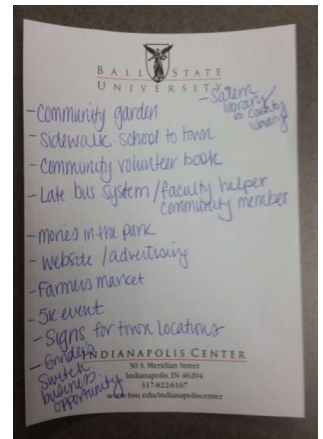 BALL STATE
UNIVERSITY
- Salem
library
County
library
- Community garden
- Sidewalk school to town
- Community volunteer book
- Late bus system / faculty helper
community member
- movies in the park
- website / advertising
- Farmers market
- 5K event
- Signs for town locations
- Grinders
Switch
business
opportunity
INDIANAPOLIS CENTER
50 S. Meridian Street
Indianapolis, IN 46204
317-822-6167
www.bsu.edu/indianapoliscenter